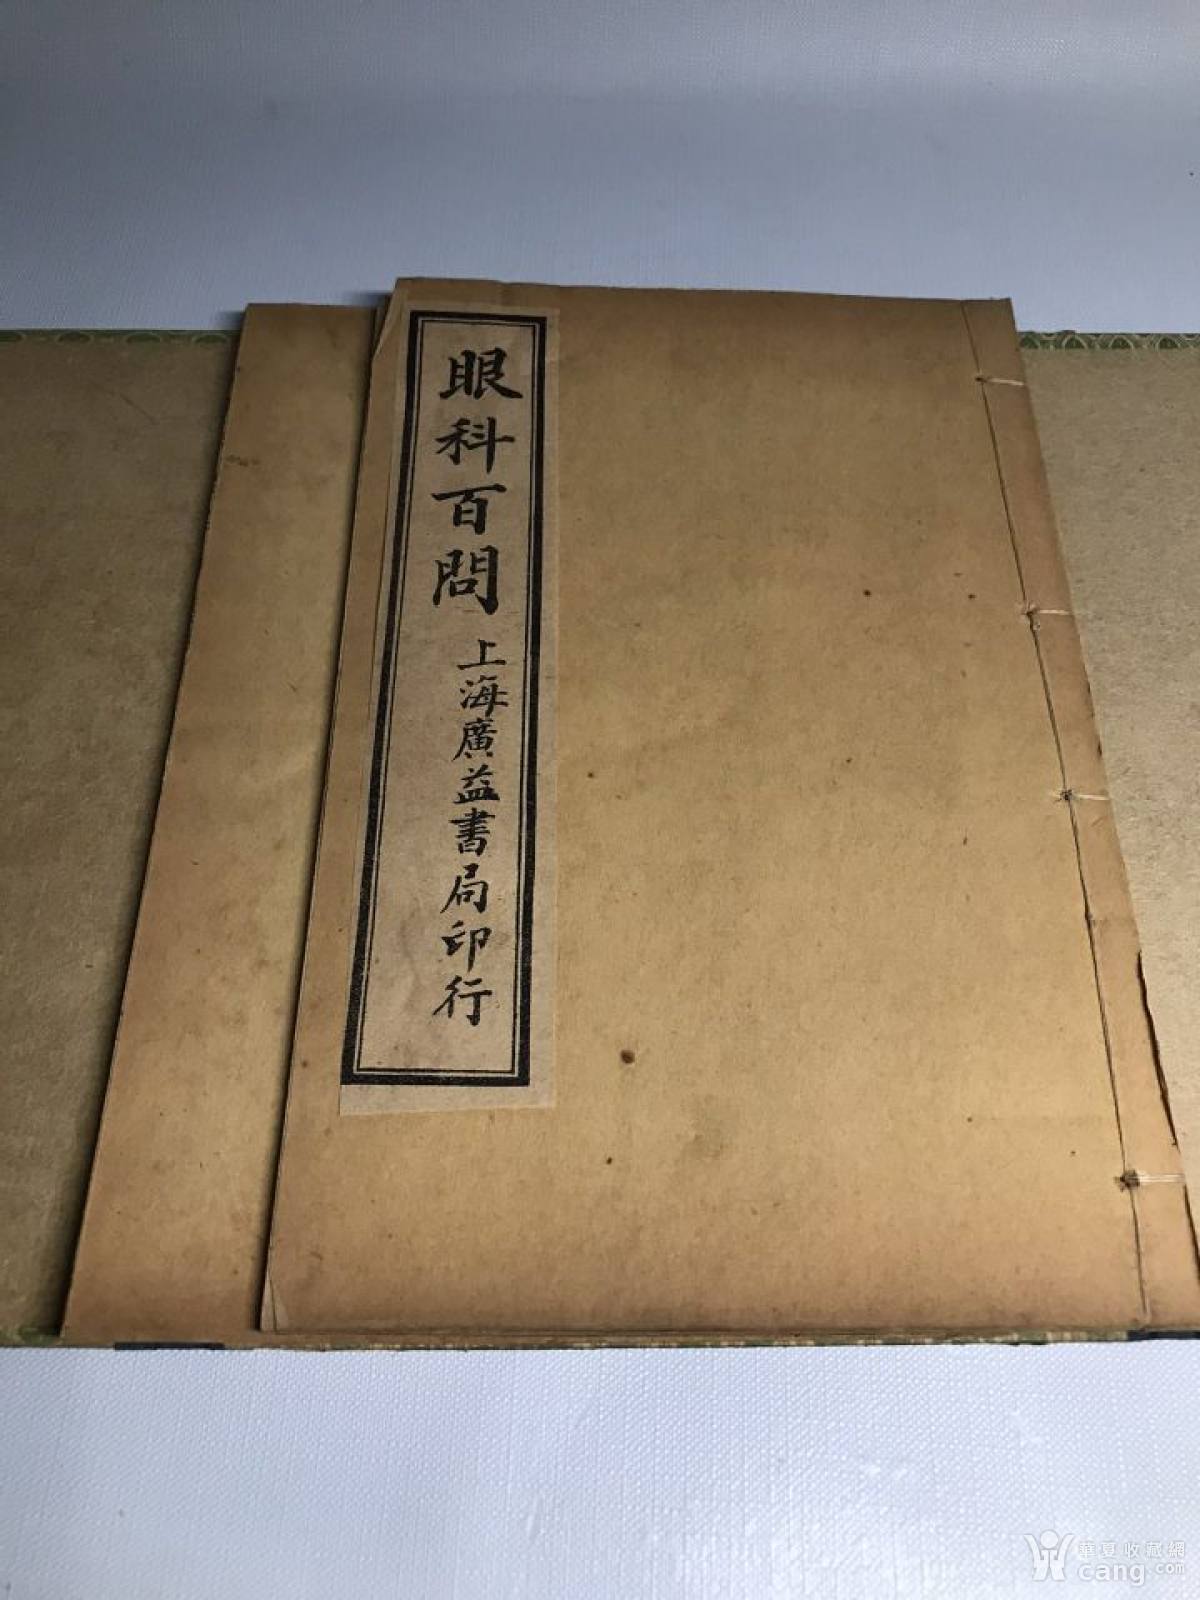 眼科百問
上海廣益書局印行
華夏收藏網
cang.com